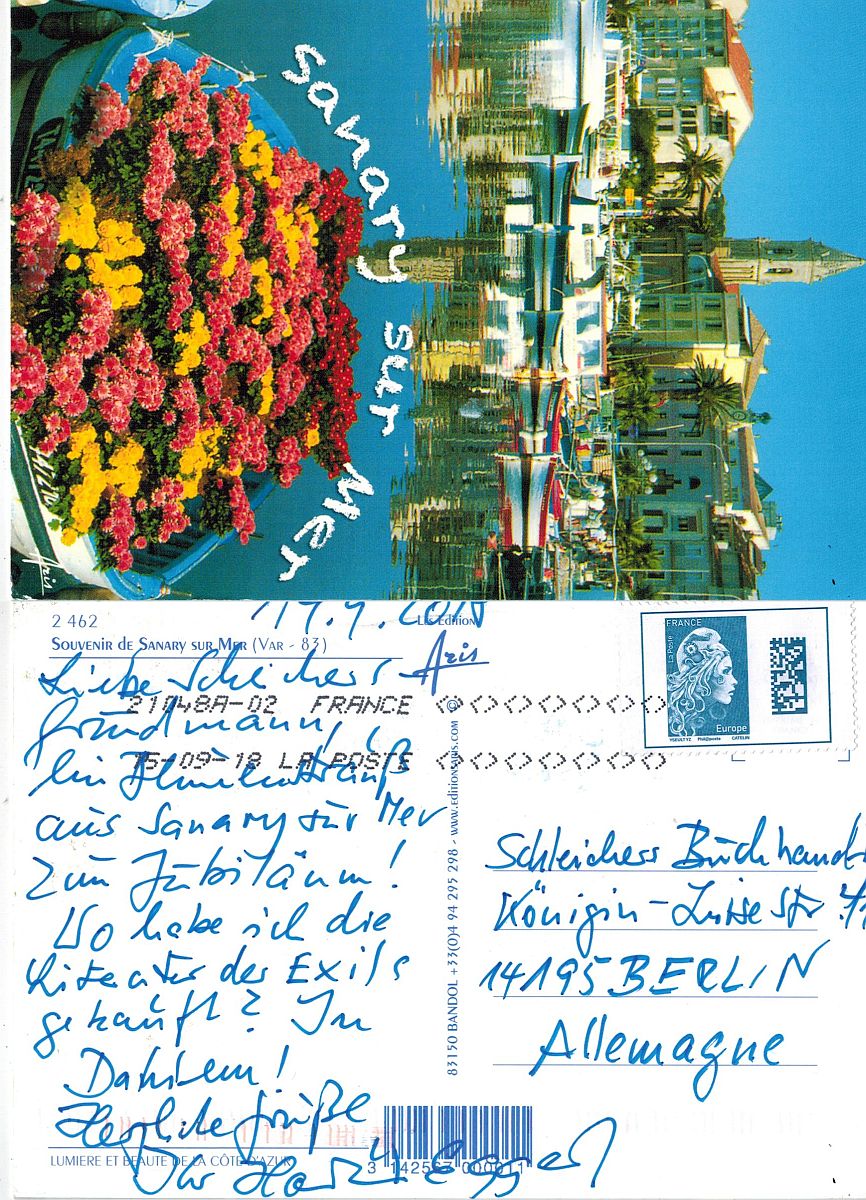 Sanary sur Mer
Aris
2 462
Les Editions
SOUVENIR DE SANARY SUR MER (VAR - 83)
Aris
Liebe Schleichers
Grundmann,
21048A-02 FRANCE
15-09-18 LA POSTE
Ein Blumenstrauß
aus Sanary sur Mer
zum Jubiläum!
Wo habe ich die
Literatur des Exils
gekauft? In
Dahlem!
Herzliche Grüße
Ihr
LUMIERE ET BEAUTE DE LA CÔTE D'AZUR
3 142567 000011
83150 BANDOL +33(0)4 94 295 298 - www.EDITIONSARIS.COM ©
FRANCE
La Poste
Europe
YSEULT YZ Phil@poste CATELIN
Schleichers Buchhandl
Königin-Luise Str
14195 BERLIN
Allemagne